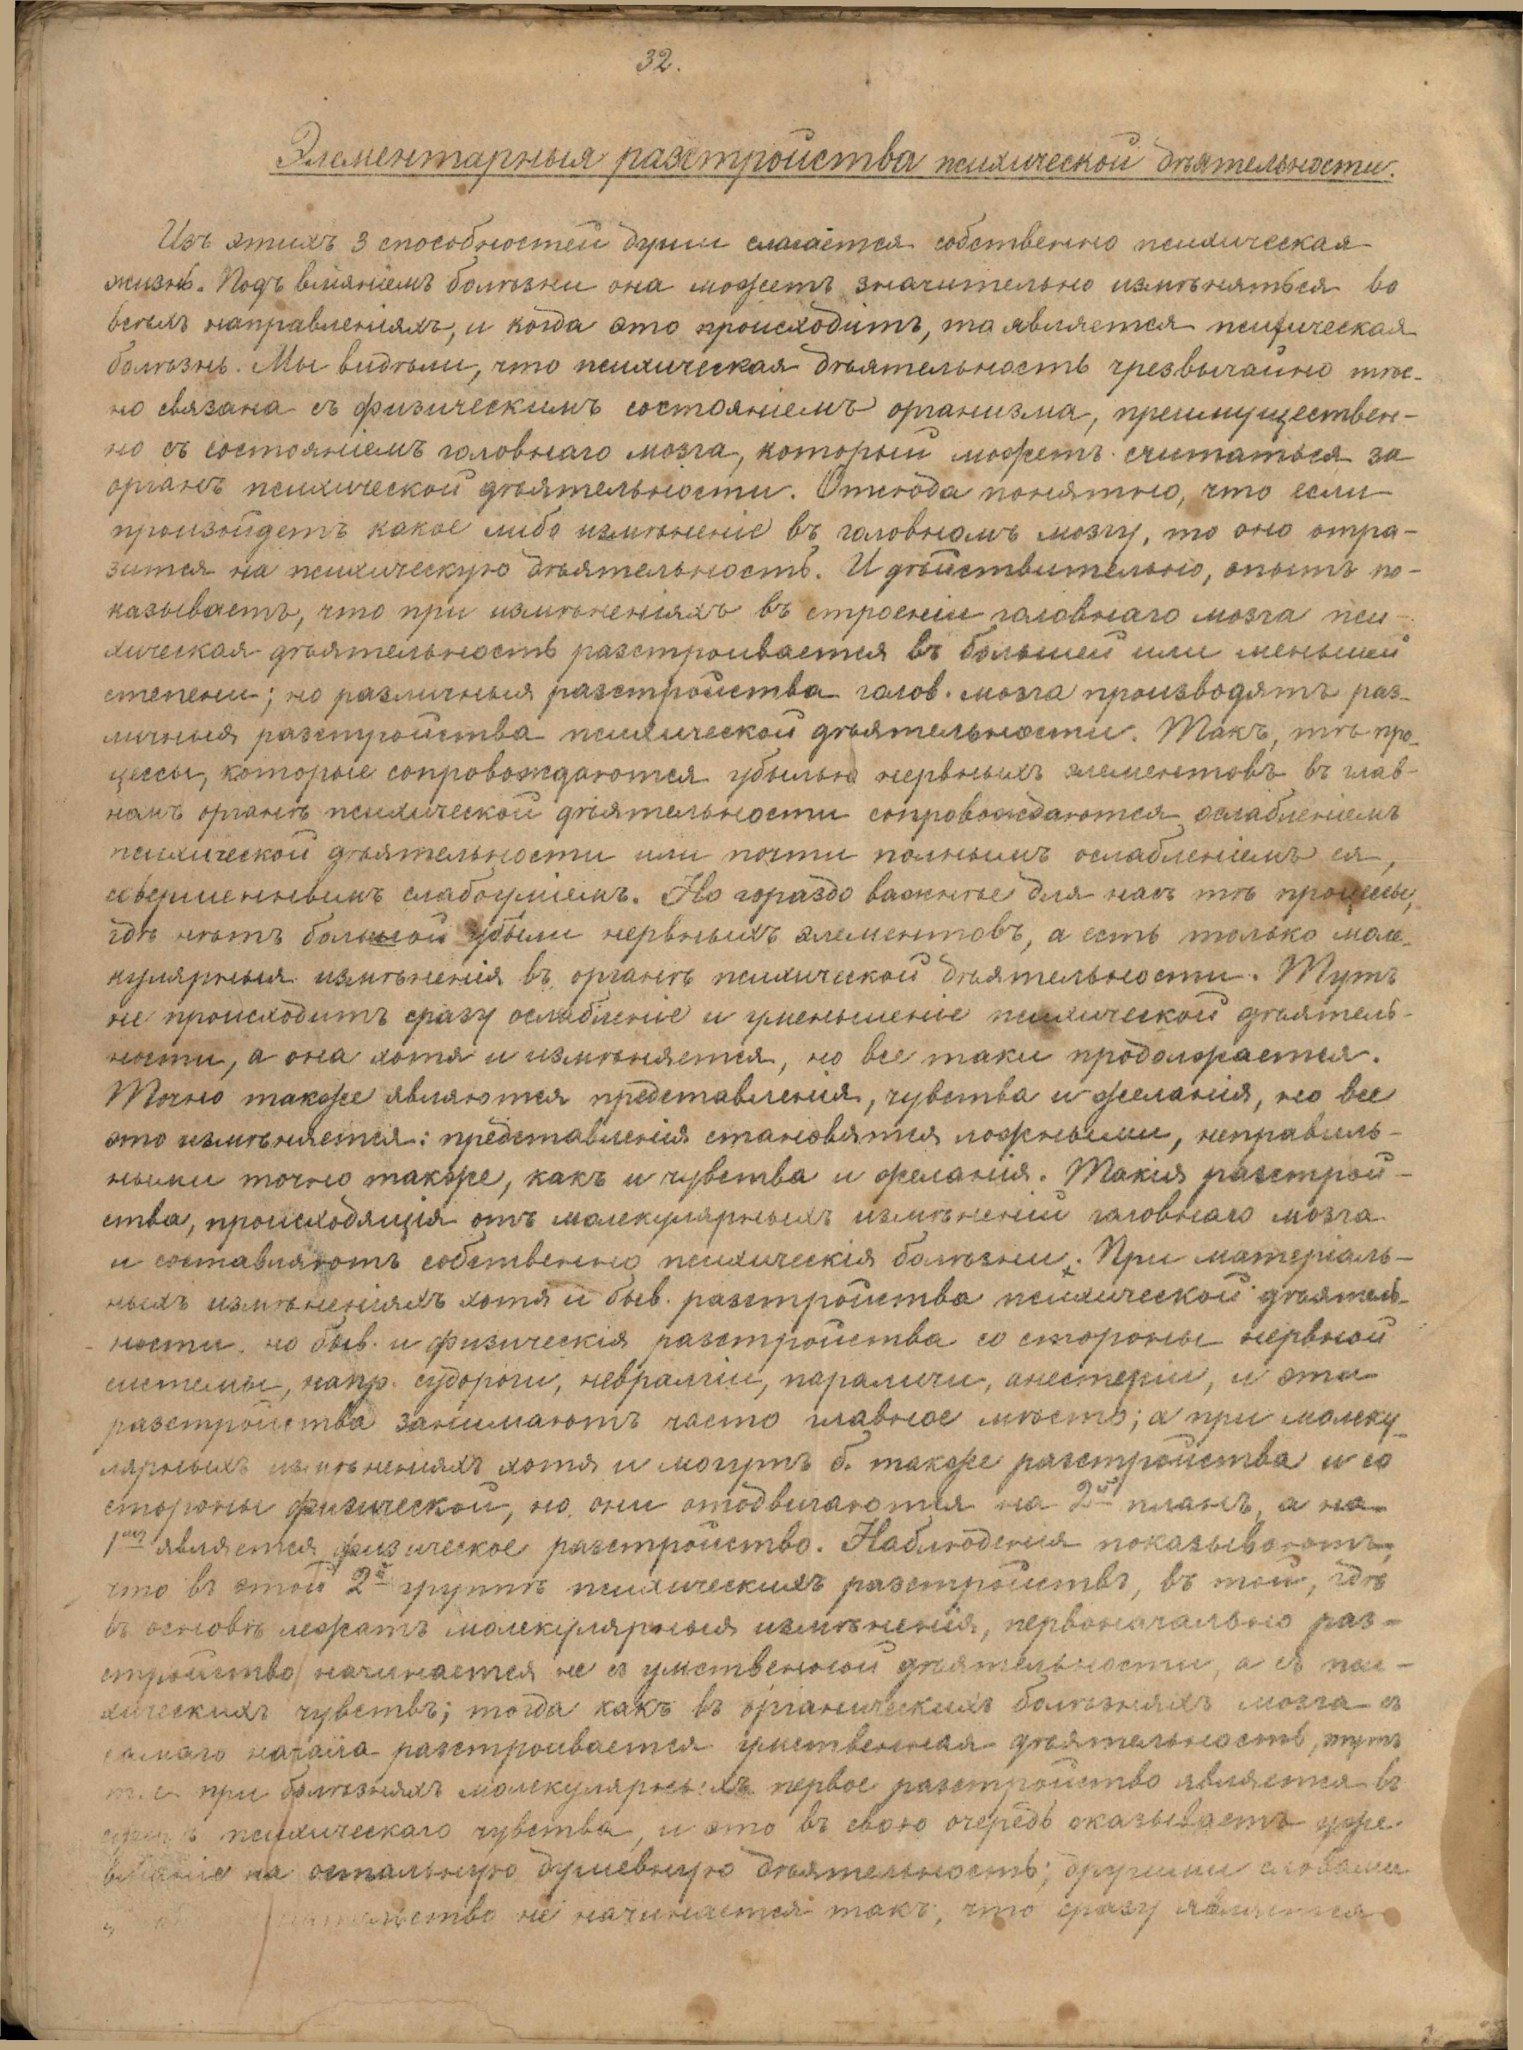 32.
Элементарныя разстройства психической дѣятельности.
Изъ этихъ 3 способностей души слагается собственно психическая
жизнь. Подъ вліяніемъ болѣзни она можетъ значительно измѣняться во
всѣхъ направленіяхъ, и когда это происходитъ, то является психическая
болѣзнь. Мы видѣли, что психическая дѣятельность чрезвычайно тѣс-
но связана съ физическимъ состояніемъ организма, преимуществен-
но съ состояніемъ головнаго мозга, который можетъ считаться за
органъ психической дѣятельности. Отсюда понятно, что если
произойдетъ какое либо измѣненіе въ головномъ мозгу, то оно отра-
зится на психическую дѣятельность. И дѣйствительно, опытъ по-
казываетъ, что при измѣненіяхъ въ строеніи головнаго мозга пси-
хическая дѣятельность разстроивается въ большей или меньшей
степени; но различныя разстройства голов. мозга производятъ раз-
личныя разстройства психической дѣятельности. Такъ, тѣ про-
цессы, которые сопровождаются убылью нервныхъ элементовъ въ глав-
номъ органѣ психической дѣятельности сопровождаются ослабленіемъ
психической дѣятельности или почти полнымъ ослабленіемъ ея,
совершеннымъ слабоуміемъ. Но гораздо важнѣе для насъ тѣ процессы,
гдѣ нѣтъ большой убыли нервныхъ элементовъ, а есть только моле-
кулярныя измѣненія въ органѣ психической дѣятельности. Тутъ
не происходитъ сразу ослабленіе и уменьшеніе психической дѣятель-
ности, а она хотя и измѣняется, но все таки продолжается.
Точно также являются представленія, чувства и желанія, но все
это измѣняется: представленія становятся ложными, неправиль-
ными точно также, какъ и чувства и желанія. Такія разстрой-
ства, происходящія отъ молекулярныхъ измѣненій головнаго мозга
и составляютъ собственно психическія болѣзни. При матеріаль-
ныхъ измѣненіяхъ хотя и быв. разстройства психической дѣятель-
ности, но быв. и физическія разстройства со стороны нервной
системы, напр. судороги, невралгіи, параличи, анестезіи, и эти
разстройства занимаютъ часто главное мѣсто; а при молеку-
лярныхъ измѣненіяхъ хотя и могутъ б. также разстройства и со
стороны физической, но они отодвигаются на 2й планъ, а на
1мъ является физическое разстройство. Наблюденія показываютъ,
что въ этой 2й группѣ психическихъ разстройствъ, въ той, гдѣ
въ основѣ лежатъ молекулярныя измѣненія, первоначально раз-
стройство начинается не съ умственной дѣятельности, а съ пси-
хическихъ чувствъ; тогда какъ въ органическихъ болѣзняхъ мозга съ
самаго начала разстроивается умственная дѣятельность, тутъ
т. е. при болѣзняхъ молекулярныхъ первое разстройство является въ
психическаго чувства, и это въ свою очередь оказываетъ уже
вліяніе на остальную душевную дѣятельность; другими словами
не начинается такъ, что сразу является